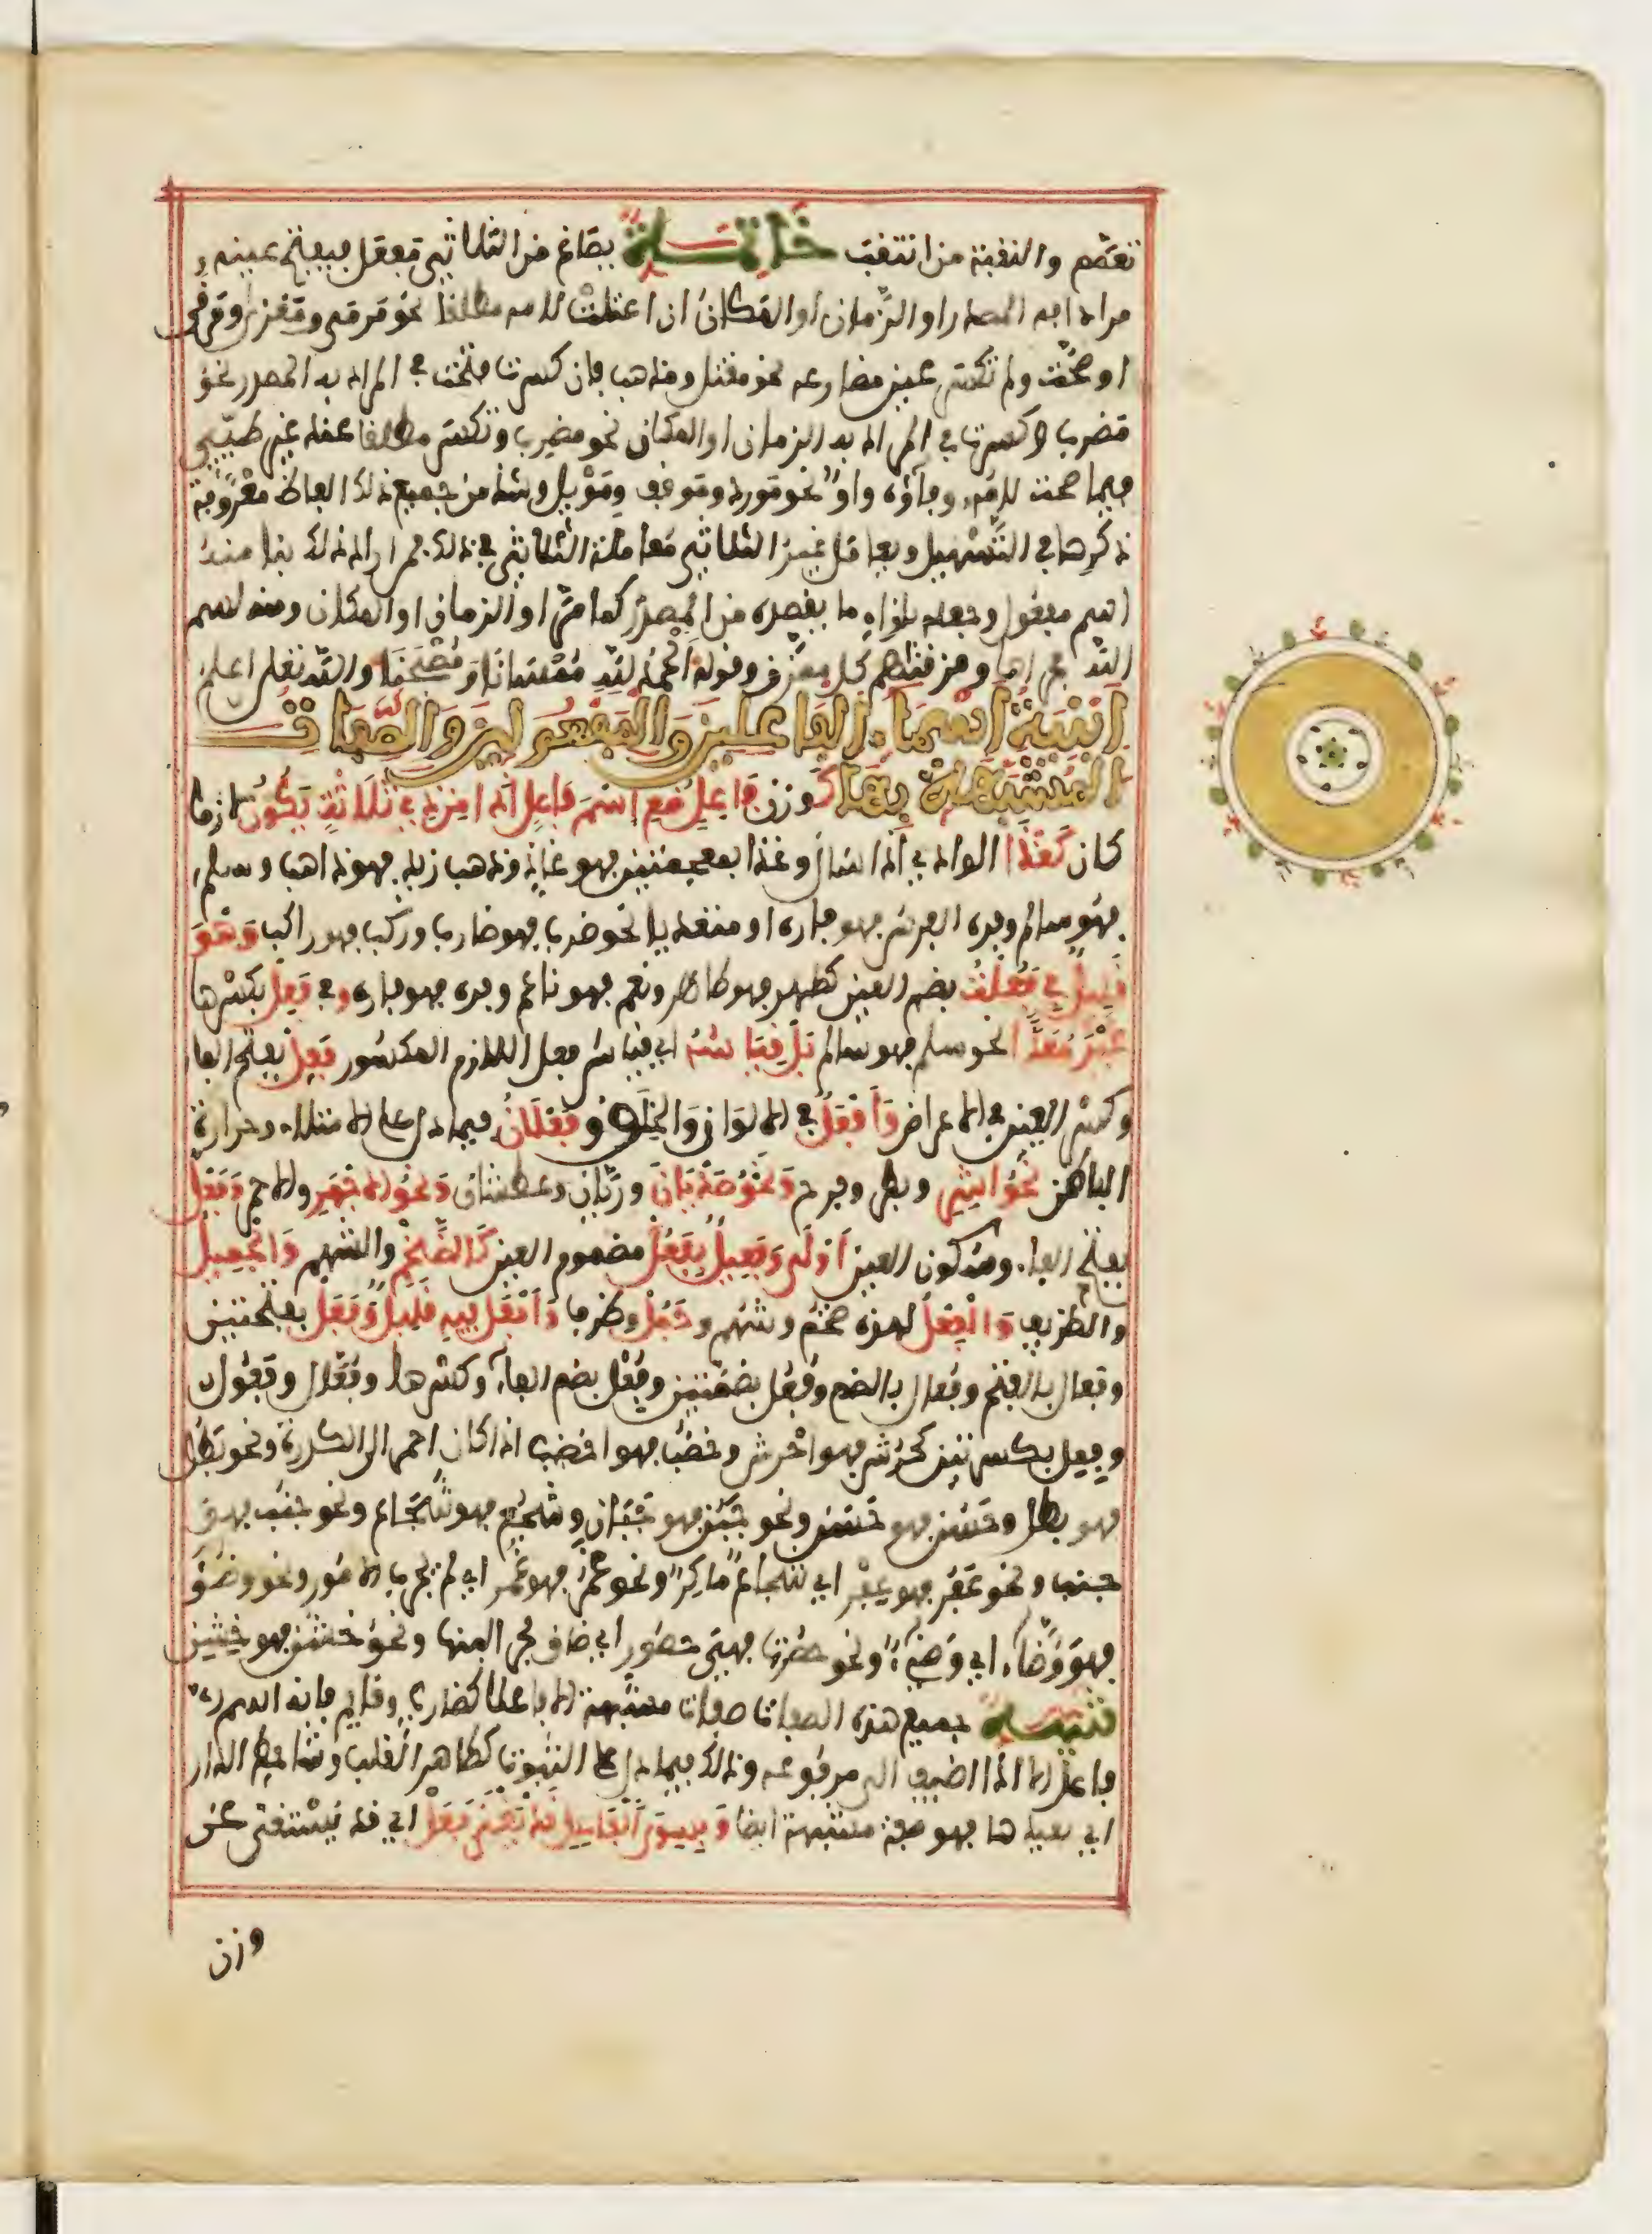 تعمم والنقبة من انتقبت خاتمة يصاغ من الثلاثي مفعل بفتح عينه
مرادا به المصدر او الزمان او المكان ان اعتلت لامه مطلقا نحو مرمى ومغزى وموقى
او صحت ولم تكسر عين مضارعه نحو مقتل ومذهب فان كسرت فتحت في المراد به المصدر نحو
مضرب وكسرت في المراد به الزمان او المكان نحو مضرب وتكسر مطلقا عند غير طيئ
فيما صحت لامه وفاؤه واو نحو مورد وموقف وموئل وشذ من جميع ذلك الفاظ معروفة
ذكرها في التسهيل ويعامل غير الثلاثي معاملة الثلاثي في ذلك فمن اراد ذلك بنا منه
اسم مفعول وجعله بازاء ما يقصده من المصدر كما مر او الزمان او المكان ومنه بسم
الله مجراها ومزقناهم كل ممزق وقوله الحمد لله ممسانا ومصبحنا والله تعلى اعلم
ابنية اسماء الفاعلين والمفعولين والصفات
المشبهات بها كوزن فاعل صغ اسم فاعل اذا من ذي ثلاثة يكون لازما
كان كغذا الوادي اذا سال وغذا بمعجمتين فهو غاذ وذهب زيد فهو ذاهب وسلم
فهو سالم وفره الفرس فهو فاره او متعديا نحو ضرب فهو ضارب وركب فهو راكب وهو
قليل في فعلت بضم العين كطهر فهو طاهر ونعم فهو ناعم وفره فهو فاره وفي فعل بكسرها
غير معدا نحو سلم فهو سالم بل قياسه اي قياس فعل اللازم المكسور فعل بفتح الفا
وكسر العين في الاعراض وافعل في الالوان والخلق وفعلان فيما دل على الامتلاء وحرارة
الباطن نحو اشر وبطر وفرح ونحو صديان وريان وعطشان ونحو الاجهر والاحمر وفعل
بفتح الفاء وسكون العين اولى وفعيل بفعل مضموم العين كالضخم والشهم والجميل
والظريف والفعل لهذه ضخم وشهم وجمل وظرف وافعل فيه قليل وفعل بفتحتين
وفعال بالفتح وفعال بالضم وفعل بضمتين وفعل بضم الفاء وكسرها وفعال وفعول
وفعل بكسرتين كحرش فهو احرش وخضب فهو اخضب اذا كان احمر الى الكدرة ونحو بطل
فهو بطل وحسن فهو حسن ونحو جبن فهو جبان وشجع فهو شجاع ونحو جنب فهو
جنب ونحو عفر فهو عفر اي شجاع ماكر ونحو غمر فهو غمر اي لم يجرب الامور ونحو وضؤ
فهو وضاء اي وضيء ونحو حصرت فهي حصور اي ضاق مجرى لبنها ونحو خشن فهو خشن
تنبيه جميع هذه الصفات صفات مشبهة الا فاعلا كضارب وقايم فانه اسم
فاعل الا اذا اضيف الى مرفوعه وذلك فيما دل على الثبوت كطاهر القلب وشاحط الدار
اي بعيدها فهو صفة مشبهة ايضا وبسوى الفاعل قد يغنى فعل اي قد يستغنى عن
وزن